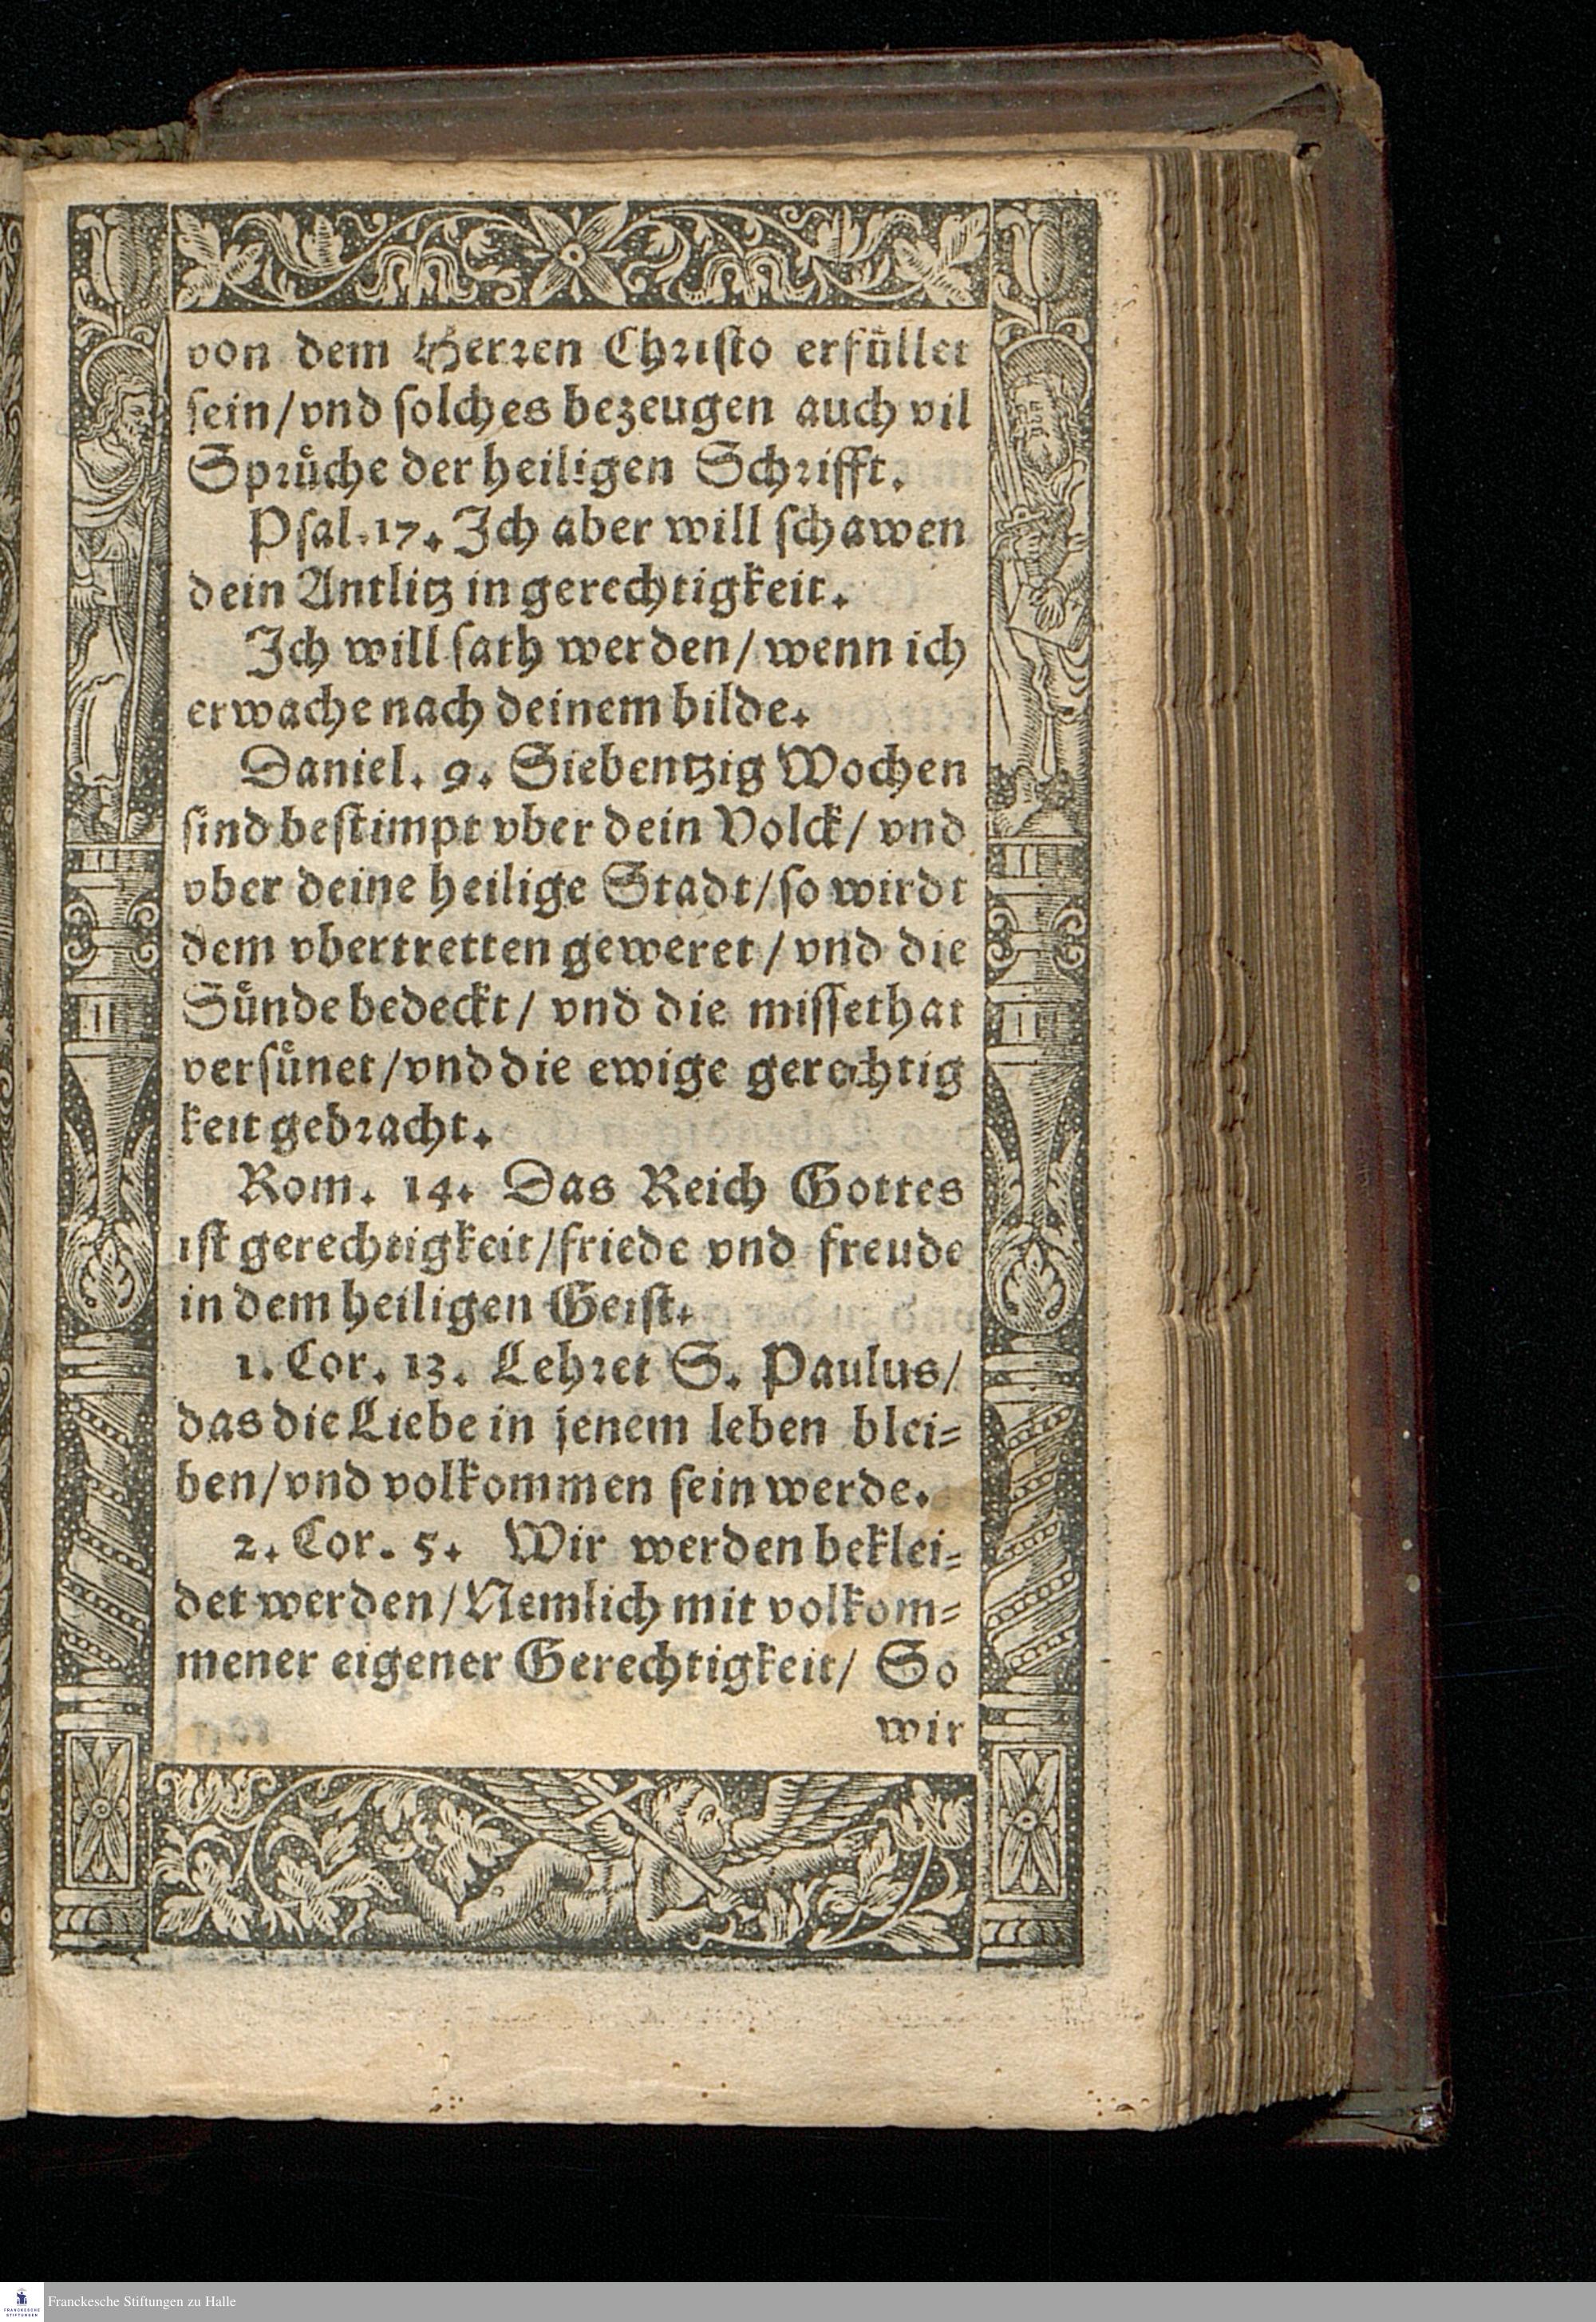 von dem Herren Christo erfüllet
sein/vnd solches bezeugen auch vil
Sprüche der heiligen Schrifft.
Psal. 17. Ich aber will schawen
dein Antlitz in gerechtigkeit.
Ich will sath werden/ wenn ich
erwache nach deinem bilde.
Daniel. 9. Siebentzig Wochen
sind bestimpt vber dein Volck/ vnd
vber deine heilige Stadt/ so wirdt
dem vbertretten geweret/ vnd die
Sünde bedeckt/ vnd die missethat
versünet/vnd die ewige gerechtig
keit gebracht.
Rom. 14. Das Reich Gottes
ist gerechtigkeit/friede vnd freude
in dem heiligen Geist.
1. Cor. 13. Lehret S. Paulus/
das die Liebe in jenem leben blei=
ben/vnd volkommen sein werde.
2. Cor. 5. Wir werden beklei=
det werden/Nemlich mit volkom=
mener eigener Gerechtigkeit/ So
wir
Franckesche Stiftungen zu Halle
FRANCKESCHE
STIFTUNGEN